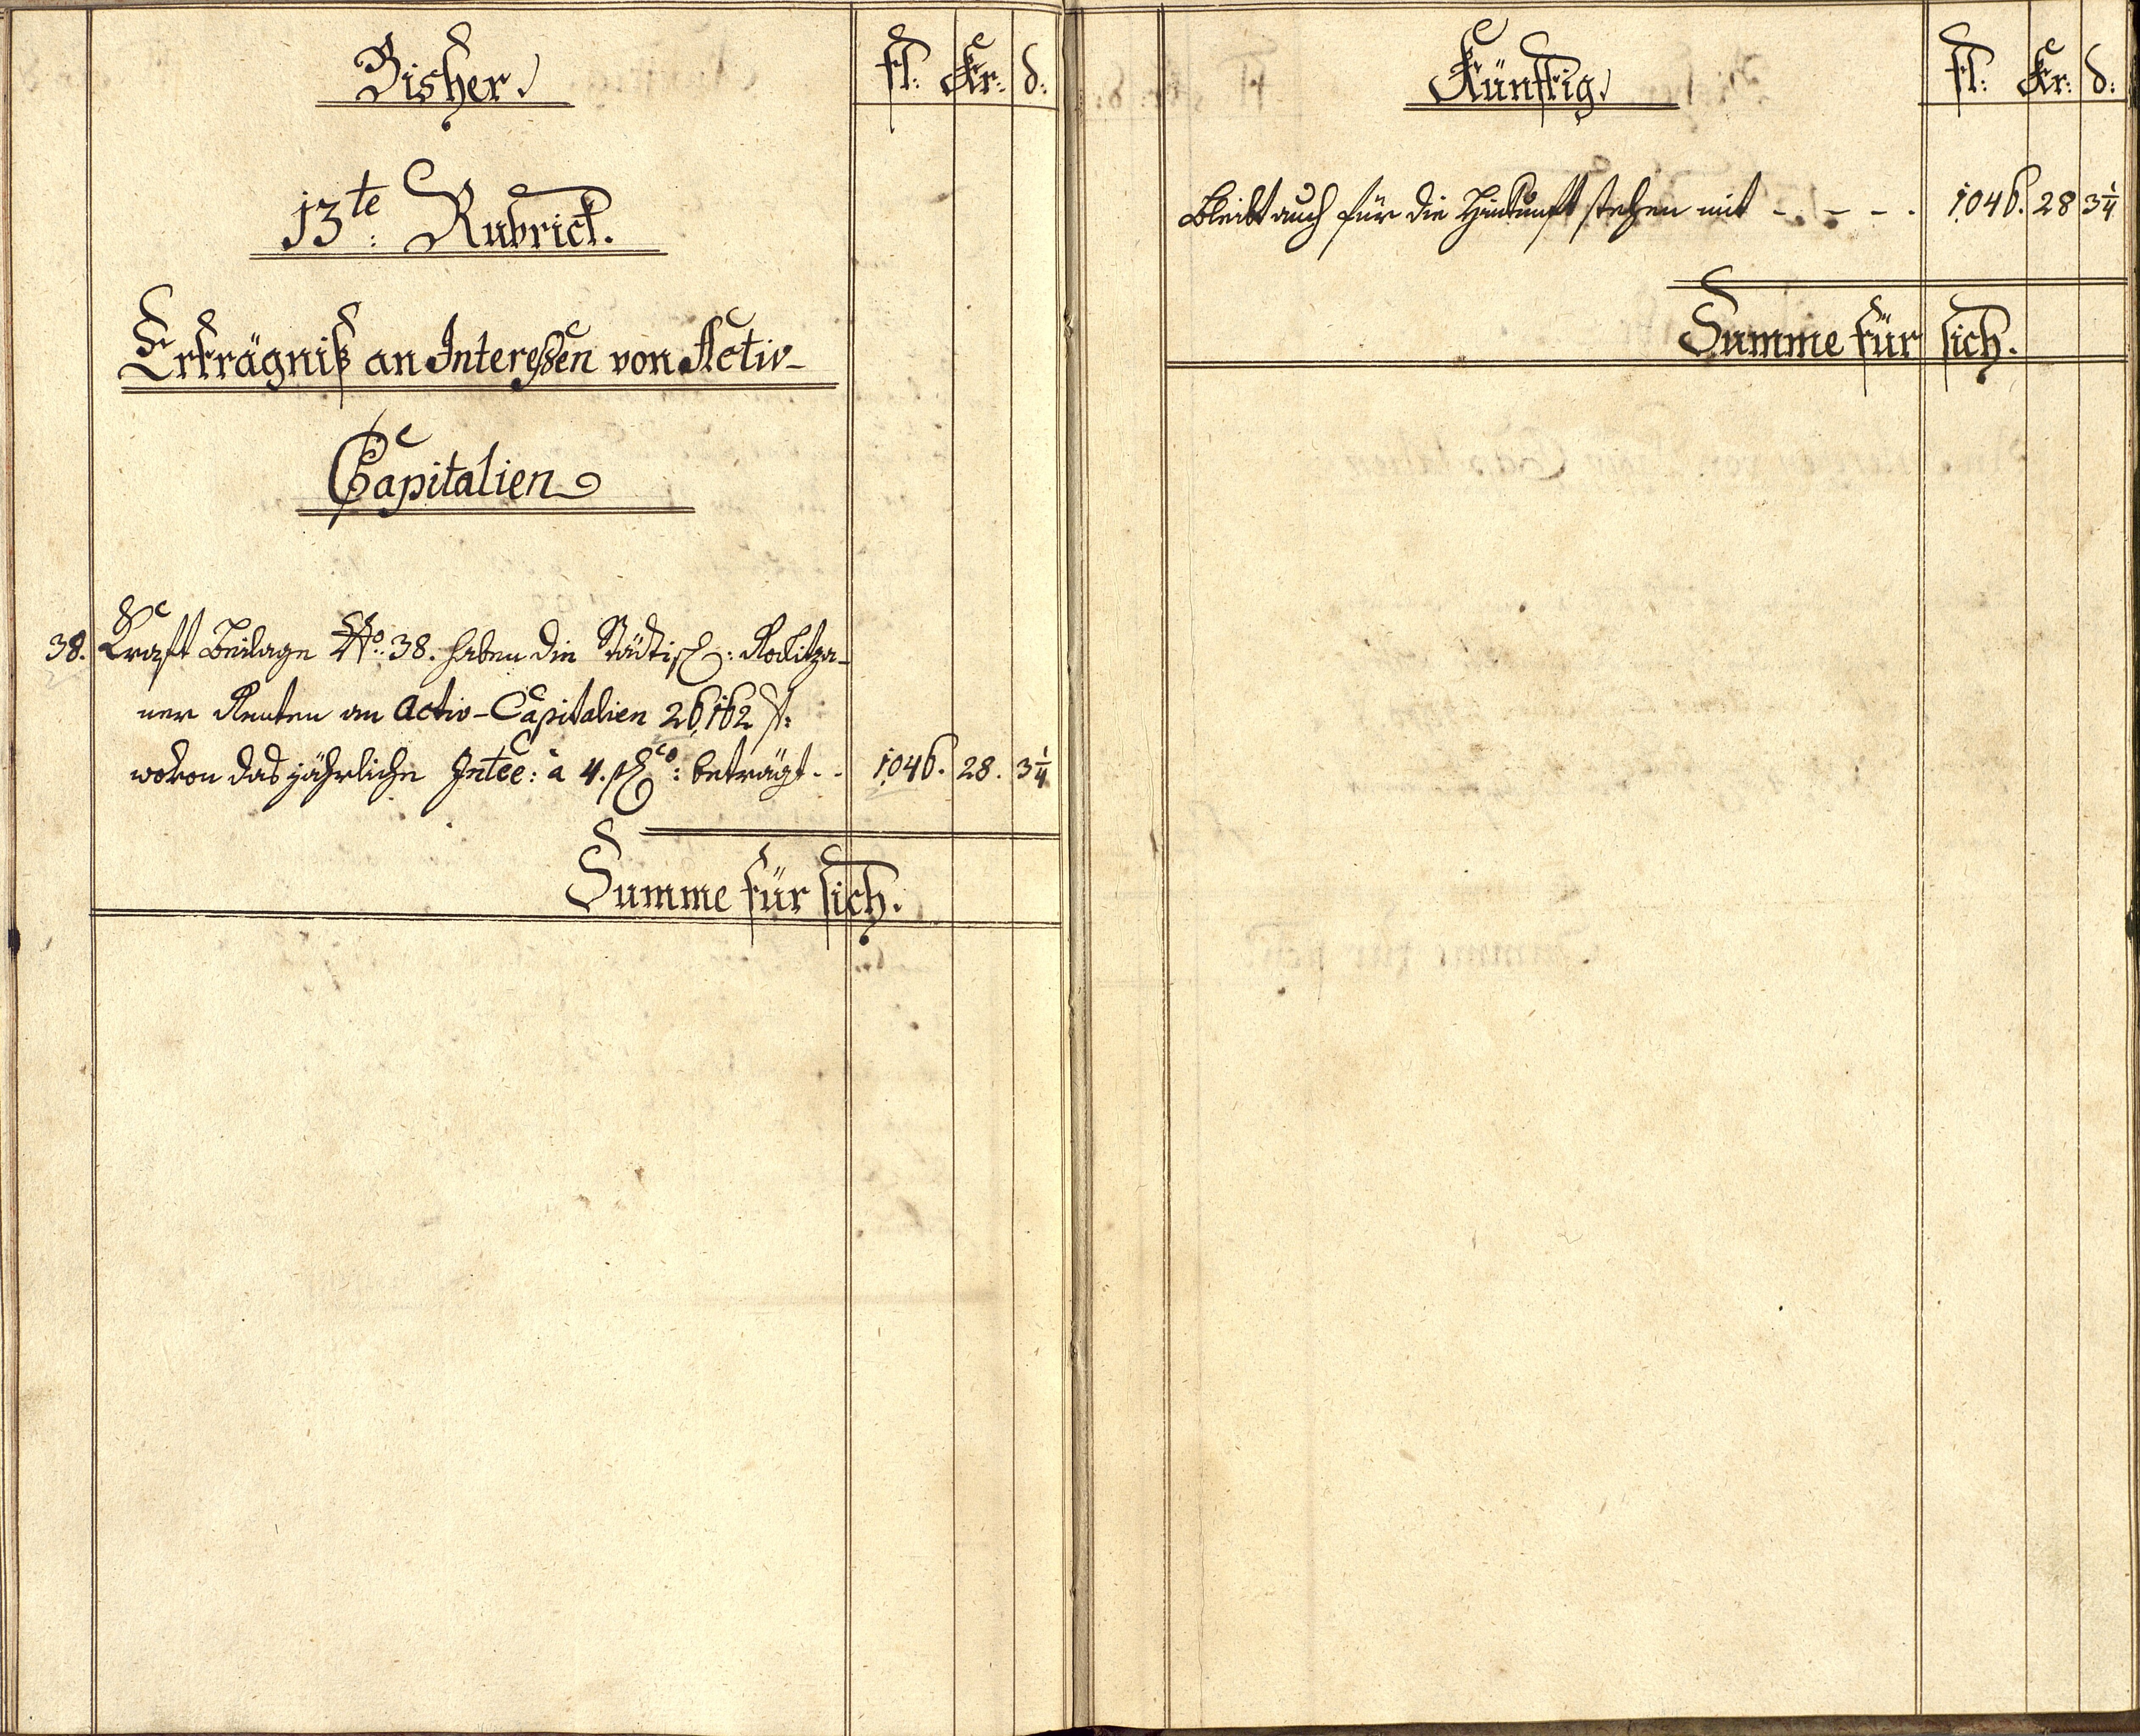 Bisher.
fl: Kr: d:
13te: Rubrick.
Erträgniß an Interessen von Activ-
Capitalien
38. Kraft Beilage No: 38. haben die Städtisch: Rokitza-
ner Renten an Activ-Capitalien 26,162 f:
wovon das jährliche Intee: à 4. pco: beträgt - - 1046. 28. 3 1/4
Summe für sich.
Künftig.
fl: Kr: d:
Bleibt auch für die Hinkunft stehen mit - - - - 1046. 28 3 1/4
Summe für sich.